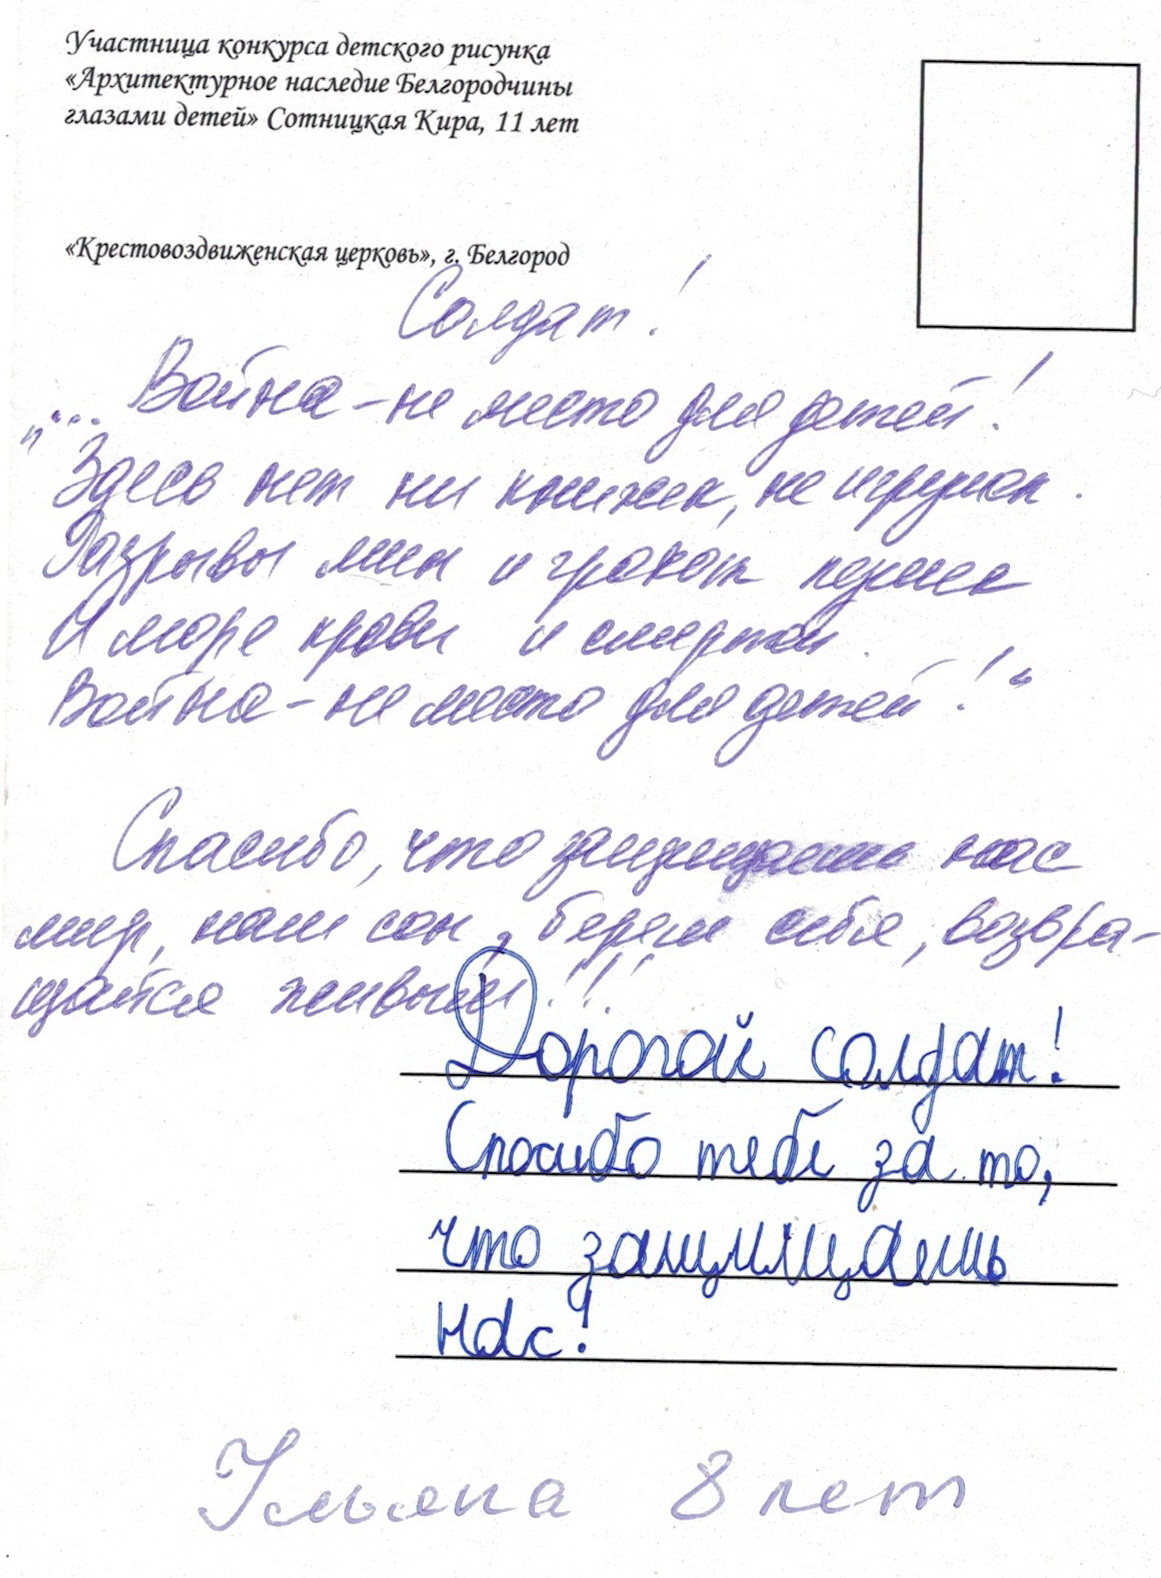 Участница конкурса детского рисунка
«Архитектурное наследие Белгородчины
глазами детей» Сотницкая Кира, 11 лет
«Крестовоздвиженская церковь», г. Белгород
Солдат!
„... Война – не место для детей!
Здесь нет ни книжек, не игрушек.
Разрывы мин и грохот пушек
И море крови и смертей.
Война – не место для детей!“
Спасибо, что защищаешь нас
мир, наш сон, береги себя, возвра-
щайся живым!!!
Дорогой солдат!
Спасибо тебе за то,
что защищаешь
нас!
Ульяна 8 лет